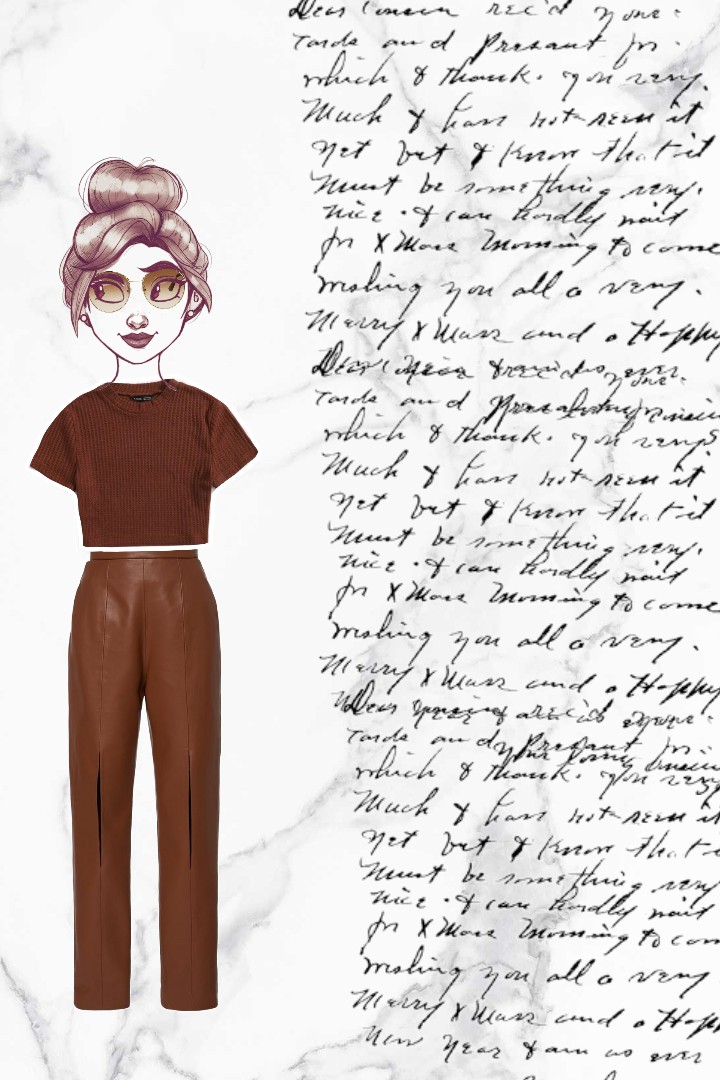 Dear Cousin rec'd your
Cards and Presant for
which I thank. you very.
Much I have not seen it
yet but I Know that it
Must be something very.
nice. I can hardly wait
for XMass Morning to come
wishing you all a very.
Merry XMass and a Happy
Cards and
which I thank. you very
Much I have not seen it
yet but I Know that it
Must be something very.
nice. I can hardly wait
for XMass Morning to come
wishing you all a very.
Merry XMass and a Happy
Dear
Cards and Presant for
which I thank. you very
Much I have not seen it
yet but I Know that it
Must be something very
nice. I can hardly wait
for XMass Morning to com
wishing you all a very
Merry XMass and a Happy
New Year I am as ever